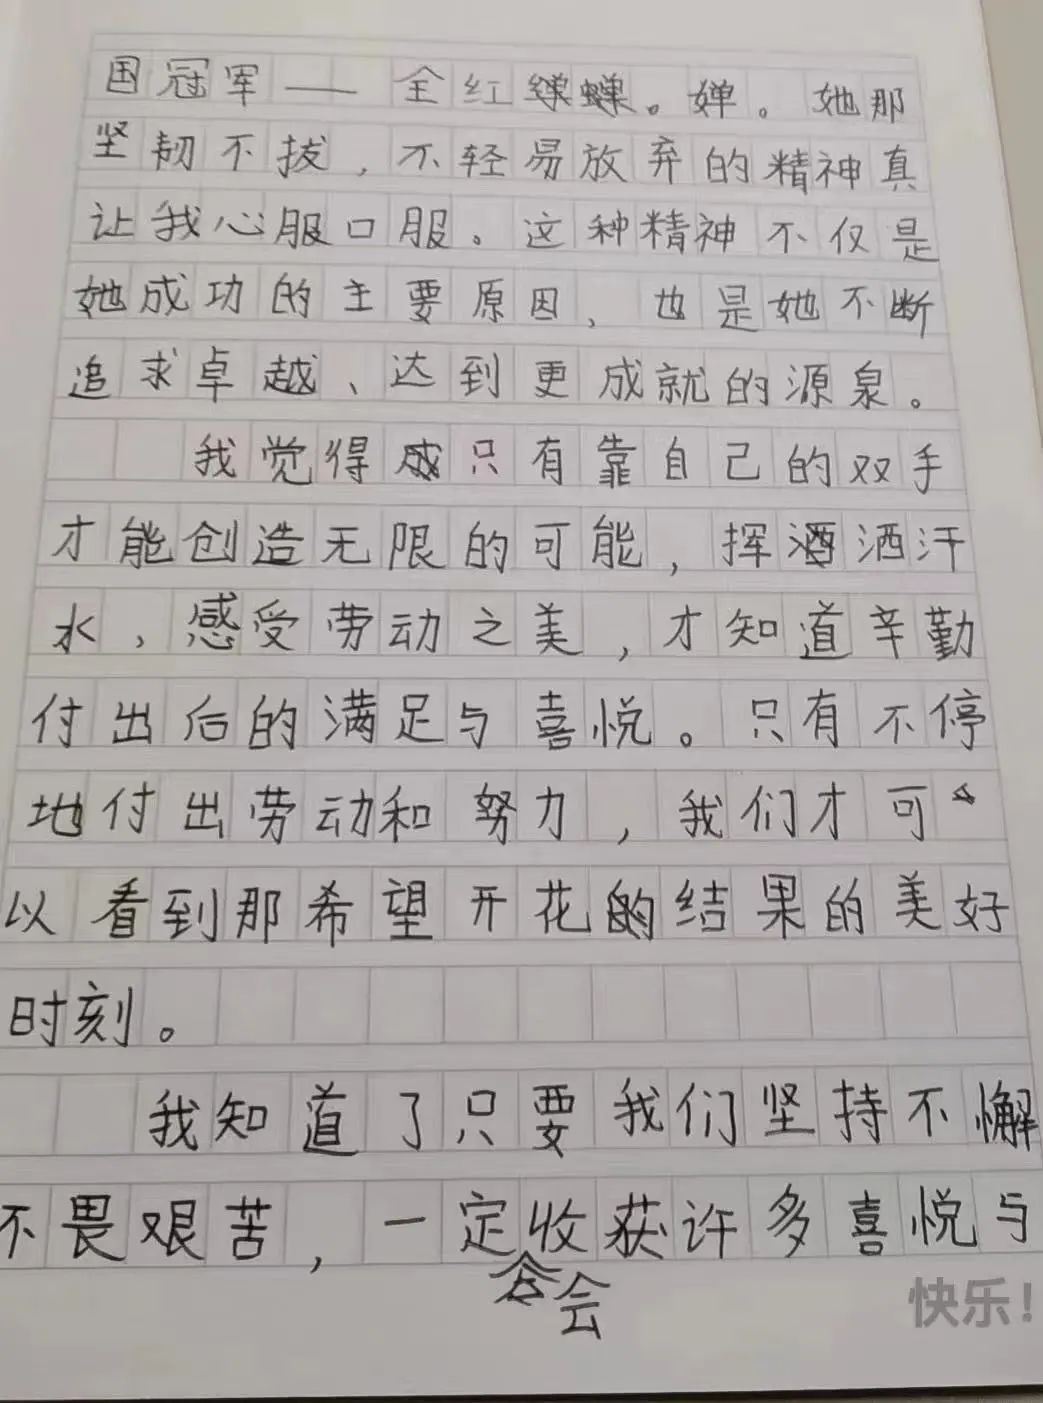 国冠军——全红婵。她那
坚韧不拔，不轻易放弃的精神真
让我心服口服。这种精神不仅是
她成功的主要原因，也是她不断
追求卓越、达到更成就的源泉。
我觉得只有靠自己的双手
才能创造无限的可能，挥洒汗
水，感受劳动之美，才知道辛勤
付出后的满足与喜悦。只有不停
地付出劳动和努力，我们才可
以看到那希望开花的结果的美好
时刻。
我知道了只要我们坚持不懈
不畏艰苦，一定会收获许多喜悦与
快乐！